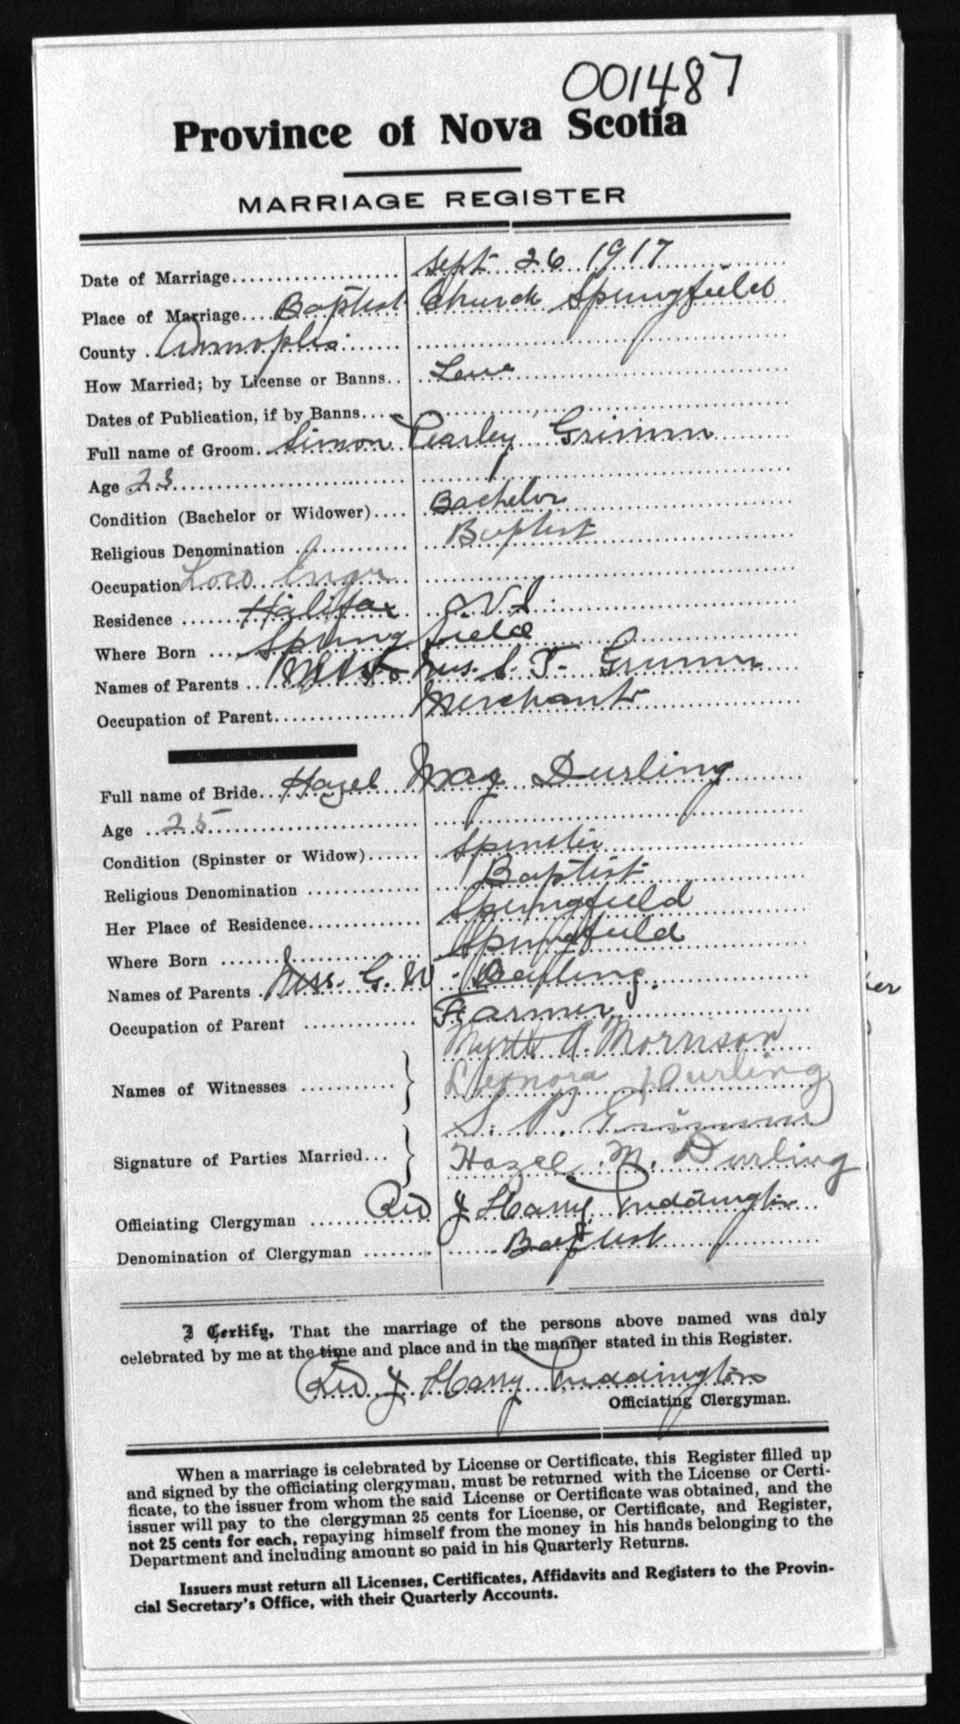 001487
Province of Nova Scotia
MARRIAGE REGISTER
Date of Marriage Sept 26 1917
Place of Marriage Baptist Church Springfield
County Annapolis
How Married; by License or Banns
Dates of Publication, if by Banns
Full name of Groom Simon Pearley Grimm
Age 23
Condition (Bachelor or Widower) Bachelor
Religious Denomination Baptist
Occupation Loco Engr
Residence Halifax N.S.
Where Born Springfield
Names of Parents Mrs. S. T. Grimm
Occupation of Parent Merchant
Full name of Bride Hazel May Durling
Age 25
Condition (Spinster or Widow) Spinster
Religious Denomination Baptist
Her Place of Residence Springfield
Where Born Springfield
Names of Parents G. W. Durling
Occupation of Parent Farmer
Myrtle A. Morrison
Names of Witnesses Leonora Durling
S. P. Grimm
Signature of Parties Married Hazel M. Durling
Officiating Clergyman Rev J Harry Puddington
Denomination of Clergyman Baptist
I Certify, That the marriage of the persons above named was duly
celebrated by me at the time and place and in the manner stated in this Register.
Rev J Harry Puddington
Officiating Clergyman.
When a marriage is celebrated by License or Certificate, this Register filled up
and signed by the officiating clergyman, must be returned with the License or Certi-
ficate, to the issuer from whom the said License or Certificate was obtained, and the
issuer will pay to the clergyman 25 cents for License, or Certificate, and Register,
not 25 cents for each, repaying himself from the money in his hands belonging to the
Department and including amount so paid in his Quarterly Returns.
Issuers must return all Licenses, Certificates, Affidavits and Registers to the Provin-
cial Secretary's Office, with their Quarterly Accounts.